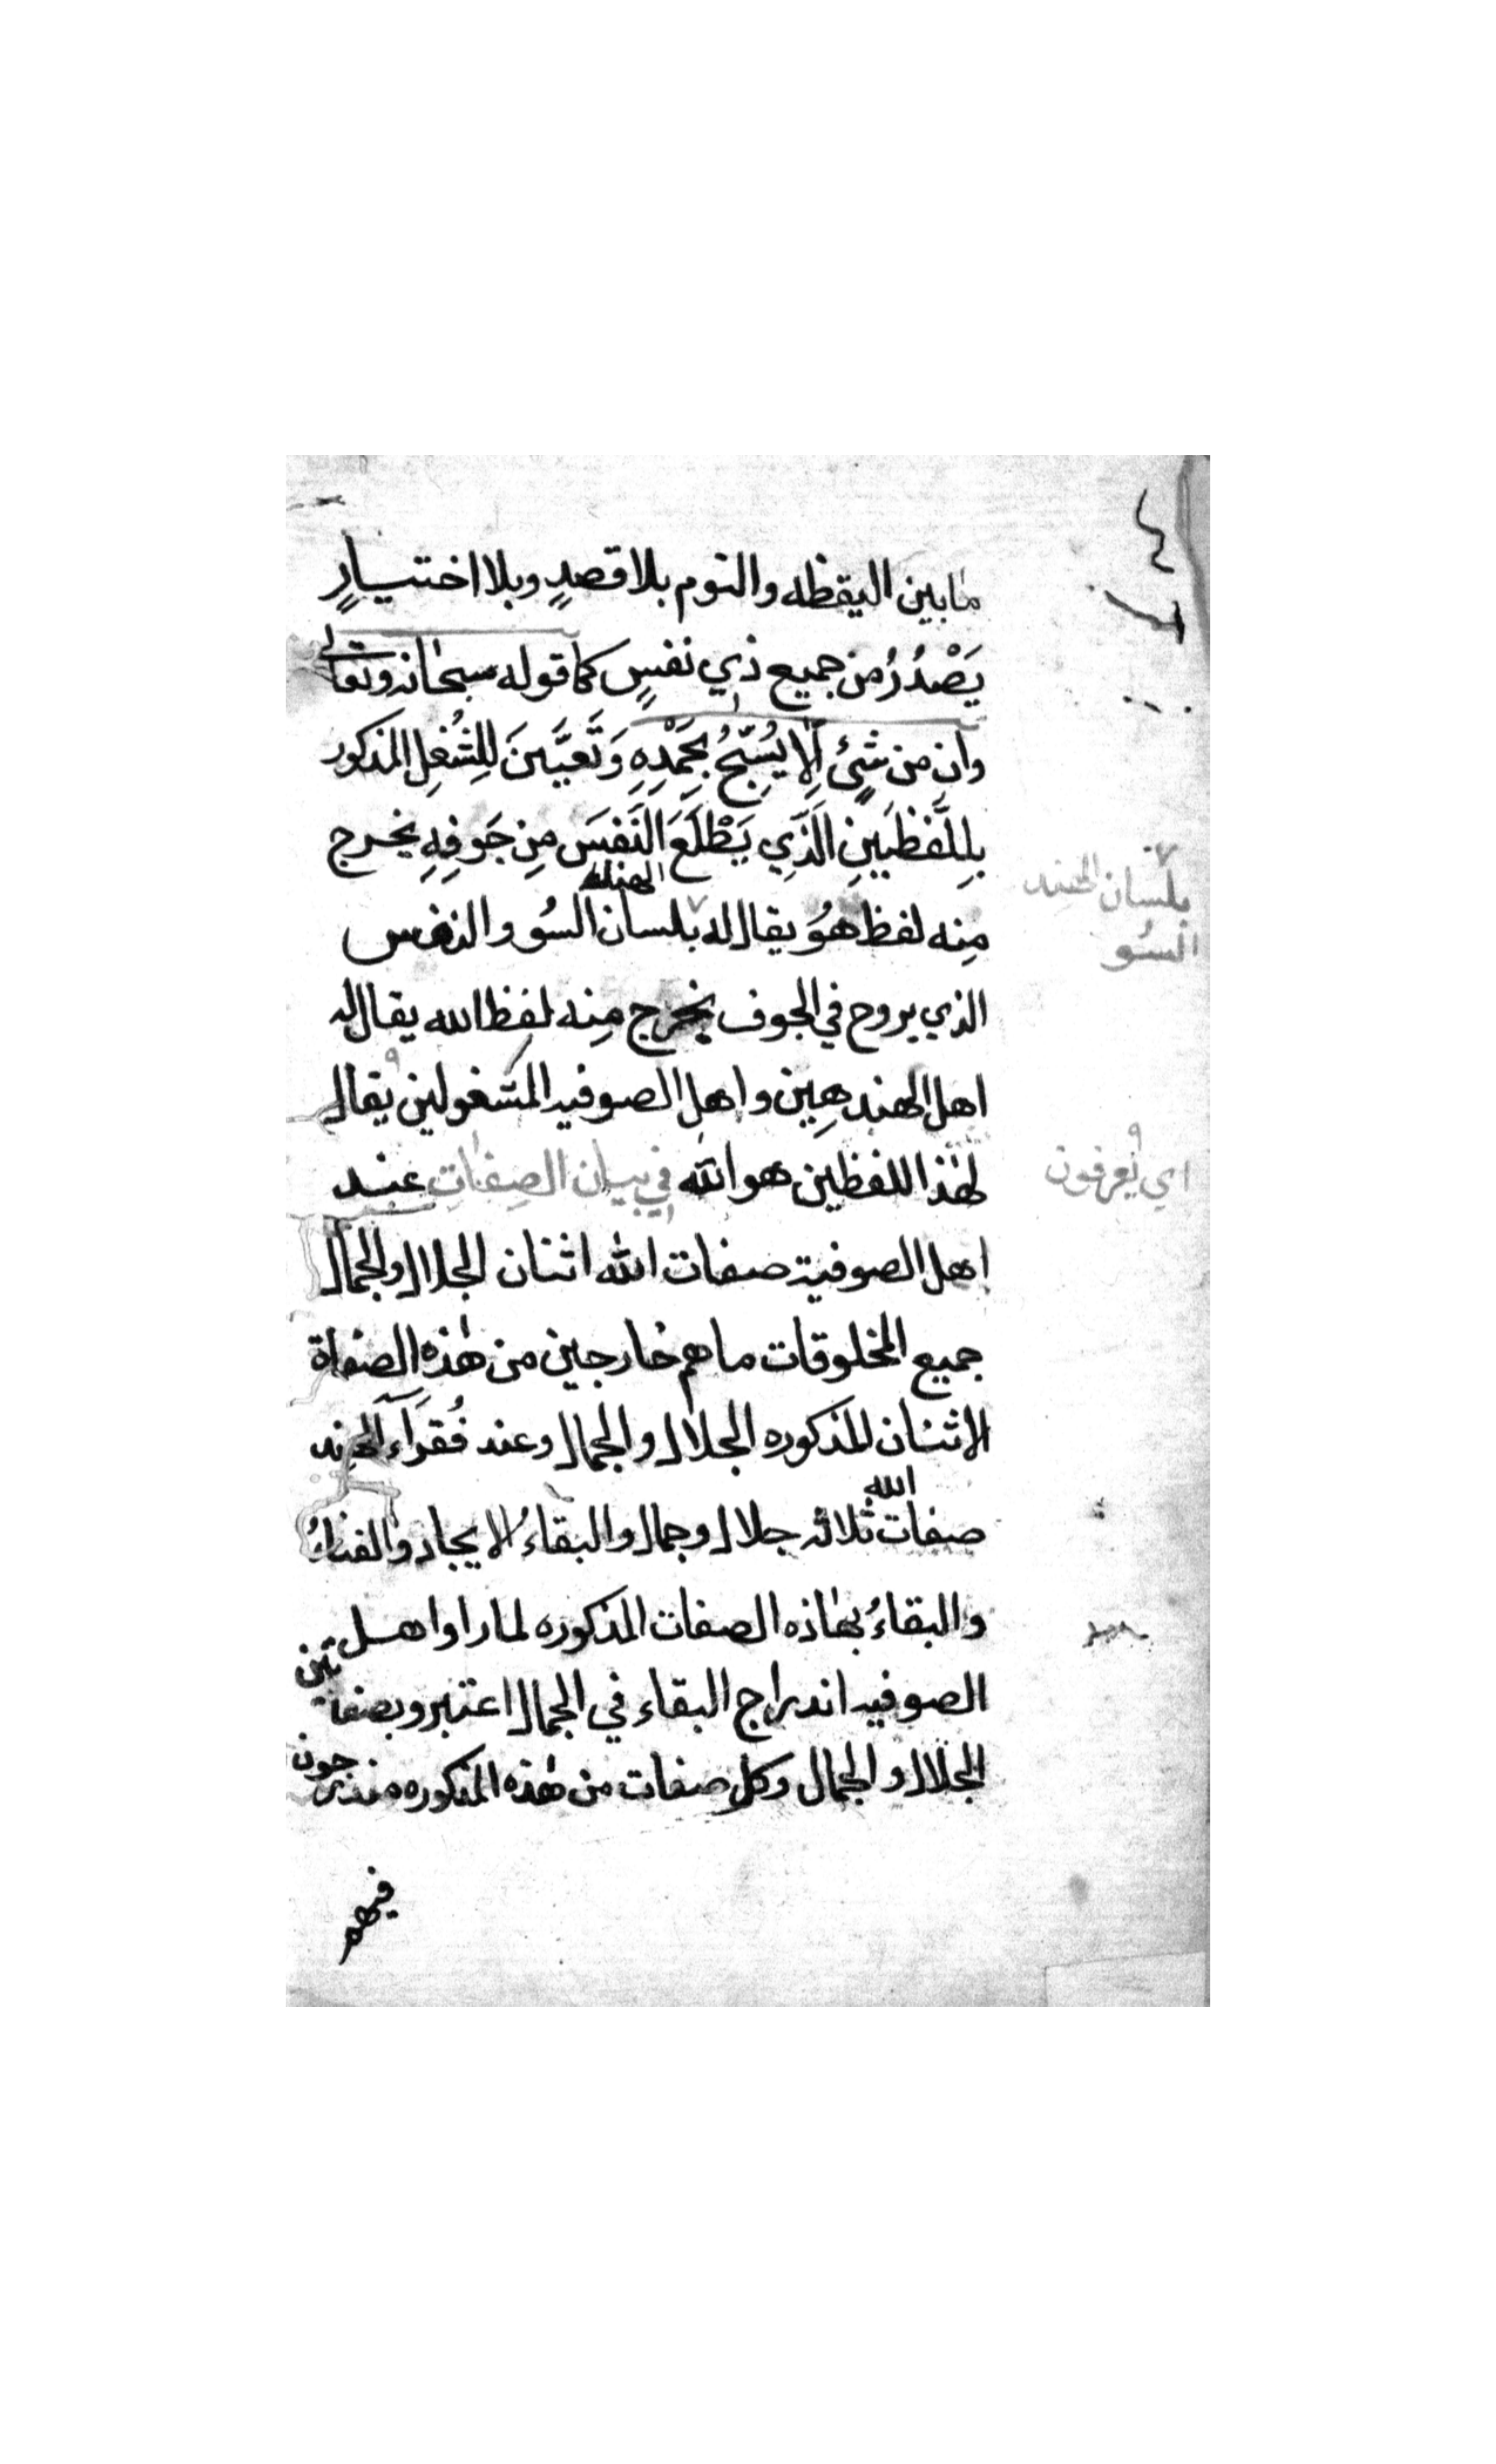 مابين اليقظه والنوم بلا قصدٍ وبلا اختيارٍ
يَصْدُرُ من جميع ذي نفسٍ كما قوله سبحانه وتعالى
وان من شئٍ اِلّا يُسَبِّحُ بِحَمْدِهِ وَتَعَيَّنَ لِلشُغلِ المذكور
بِللَّفظَينِ الَّذِي يَطْلَعَ النَفسَ مِن جَوفِهِ يخرج
مِنه لفظ هُوَ يقال له بلسان الهند السُو والنفس
الذي يروح في الجوف يخرج مِنه لفظ الله يقال له
اهل الهند هِين واهل الصوفيه المشغولين يقال
لهذا اللفظين هو الله في بيان الصِفات عند
اهل الصوفية صفات الله اثنان الجلال والجمال
جميع المخلوقات ما هم خارجين من هذه الصفاة
الاثنان المذكوره الجلال والجمال وعند فُقرَآء الهند
صفات الله ثلاثه جلال وجمال والبقاءُ الايجاد والفناءُ
والبقاءُ بهاذه الصفات المذكوره لما راوا اهل
الصوفيه اندراج البقاء في الجمال اعتبرو بصفاتين
الجلال والجمال وكل صفات من هذه المذكوره مندرجون
فيهم
٧
بلسان الهند
السُو
٩
اي يعرفون